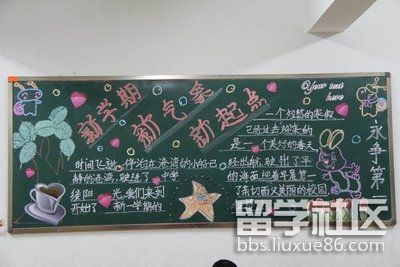 新学期
新气象
新起点
永争第
一个短暂的寒假
已经过去迎来的
是一个美好的春天
时间飞逝,停泊在港湾的小船已
经出航,驶出了平
静的港湾,驶进了
的海面
徒阳
光,我们来到
了亲切而又美丽的校园
开始了新一学期的
留学社区
bbs.liuxue86.com